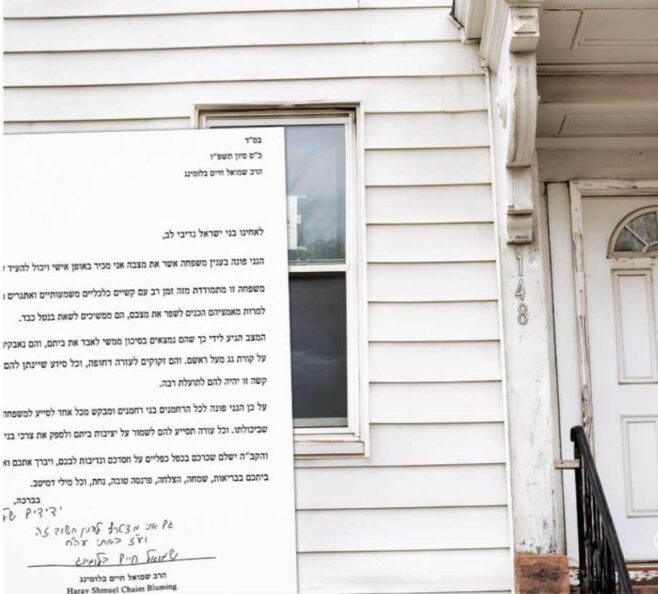 בס"ד
כ"ט סיון תשפ"ו
הרב שמואל חיים בלומינג
לאחינו בני ישראל נדיבי לב,
הנני פונה בענין משפחה אשר את מצבה אני מכיר באופן אישי ויכול להעיד
משפחה זו מתמודדת מזה זמן רב עם קשיים כלכליים משמעותיים ואתגרים
למרות מאמציהם הכנים לשפר את מצבם, הם ממשיכים לשאת בנטל כבד.
המצב הגיע לידי כך שהם נמצאים בסיכון ממשי לאבד את ביתם, והם
על קורת גג מעל ראשם. והם זקוקים לעזרה דחופה, וכל סיוע שיינתן להם
קשה זו יהיה להם לתועלת רבה.
על כן הנני פונה לכל הרחמנים בני רחמנים ומבקש מכל אחד לסייע למשפחה
שביכולתו. וכל עזרה תסייע להם לשמור על יציבות ביתם ולספק את צרכי בני
והקב"ה ישלם שכרכם בכפל כפליים על חסדכם ונדיבות לבכם, ויברך אתכם
ביתכם בבריאות, שמחה, הצלחה, פרנסה טובה, נחת, וכל מילי דמיטב.
בברכה,
גם אני מצטרף לענין חשוב זה
וע"ז באתי עה"ח
שמואל חיים בלומינג
הרב שמואל חיים בלומינג
Harav Shmuel Chaim Bluming
148